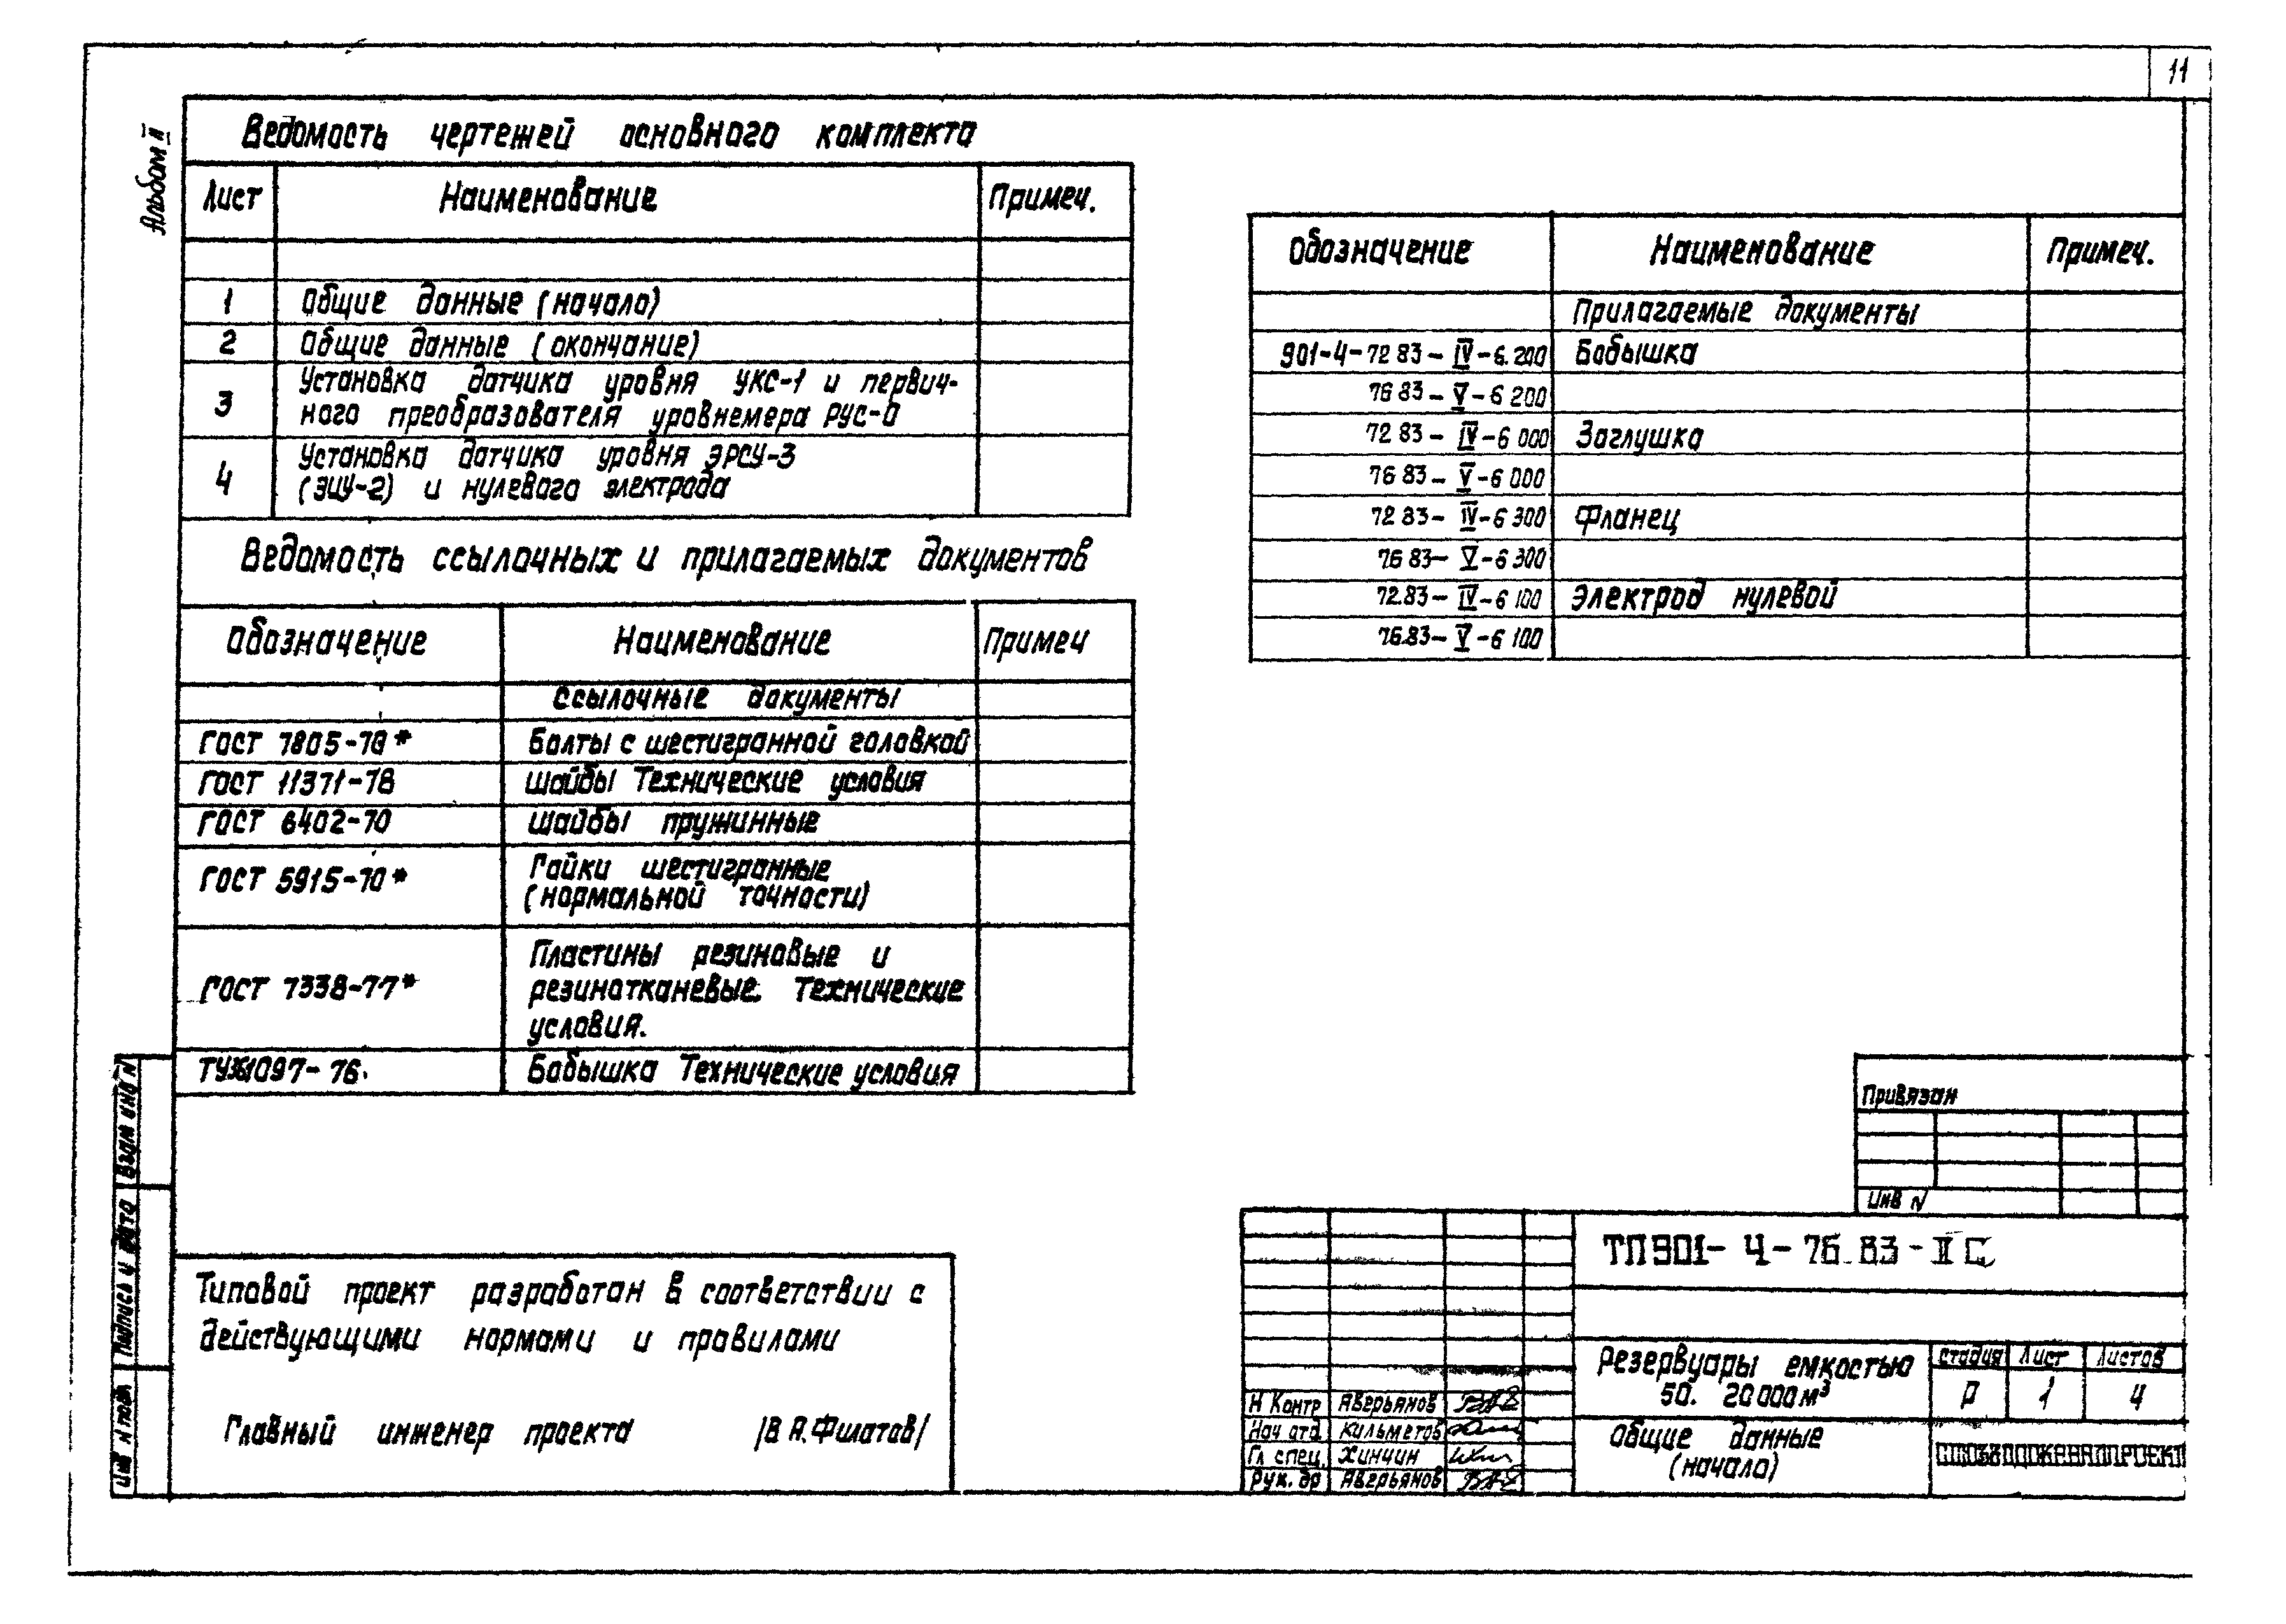 11
Альбом II
Ведомость чертежей основного комплекта
Лист Наименование Примеч.
1 Общие данные (начало)
2 Общие данные (окончание)
3 Установка датчика уровня УКС-1 и первич-
ного преобразователя уровнемера РУС-0
4 Установка датчика уровня ЭРСУ-3
(ЭИУ-2) и нулевого электрода
Ведомость ссылочных и прилагаемых документов
Обозначение Наименование Примеч
Ссылочные документы
ГОСТ 7805-70* Болты с шестигранной головкой
ГОСТ 11371-78 Шайбы Технические условия
ГОСТ 6402-70 Шайбы пружинные
ГОСТ 5915-70* Гайки шестигранные
(нормальной точности)
ГОСТ 7338-77* Пластины резиновые и
резинотканевые. Технические
условия.
ТУ36.1097-76. Бобышка Технические условия
Обозначение Наименование Примеч.
Прилагаемые документы
901-4-72 83-IV-6.200 Бобышка
76 83-V-6 200
72 83-IV-6 000 Заглушка
76 83-V-6 000
72 83-IV-6 300 Фланец
76 83-V-6 300
72.83-IV-6 100 Электрод нулевой
76.83-V-6 100
Типовой проект разработан в соответствии с
действующими нормами и правилами
Главный инженер проекта /В А.Филатов/
Инв N подл Подпись и дата Взам инв N
Привязан
Инв N
ТП901-4-76.83-II С
Резервуары емкостью
50. 20000м³
Стадия Лист Листов
Р 1 4
Общие данные
(начало)
СОЮЗВОДОКАНАЛПРОЕКТ
Н Контр Аверьянов
Нач отд. Кильметов
Гл спец. Хинчин
Рук. бр Аверьянов